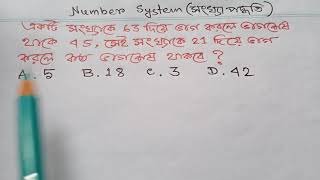 Number System (সংখ্যা পদ্ধতি)
একটি সংখ্যাকে 63 দিয়ে ভাগ করলে ভাগশেষ
থাকে 45, সেই সংখ্যাকে 21 দিয়ে ভাগ
করলে কত ভাগশেষ থাকবে ?
A. 5 B. 18 C. 3 D. 42